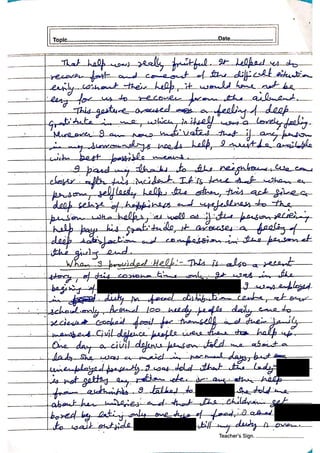 Topic Date
That help was really fruitful. It helped us to
recover fast and come out of the difficult situation
easily without their help, it would have not be
easy for us to recover from the ailment.
This gesture aroused a feeling of deep
gratitute in me, which in itself was a lovely feeling.
Moreover I am now motivated that if any person
in my surroundings needs help, I must be available
with best possible means.
I paid my thanks to the neighbours, we came
closer after this incident. It is true that when a
person, selflessly helps the other, this act give a
deep sense of happiness and usefulness to the
person who helps, as well as if the person recieving
help pays his gratitude, it arouses a feeling of
deep satisfaction and compassion in the person at
the giving end.
When I provided Help:- This is also a recent
story, of this corona time only. It was in the
begining of I was employed
in duty in food distribution centre, at our
school only. Around 100 needy people daily came to
recieve cooked food for themself and their family
members. Civil defence people were there to help us.
One day a civil defence person told me about a
lady. She was a maid in normal days, but
unemployed presently. I was told that the lady
is not getting any ration etc. or any other help
from authorities. I talked to She told me
about her miseries and that the children get
bored by eating only one type of food, I asked
to wait outside till my duty is over.
Teacher's Sign